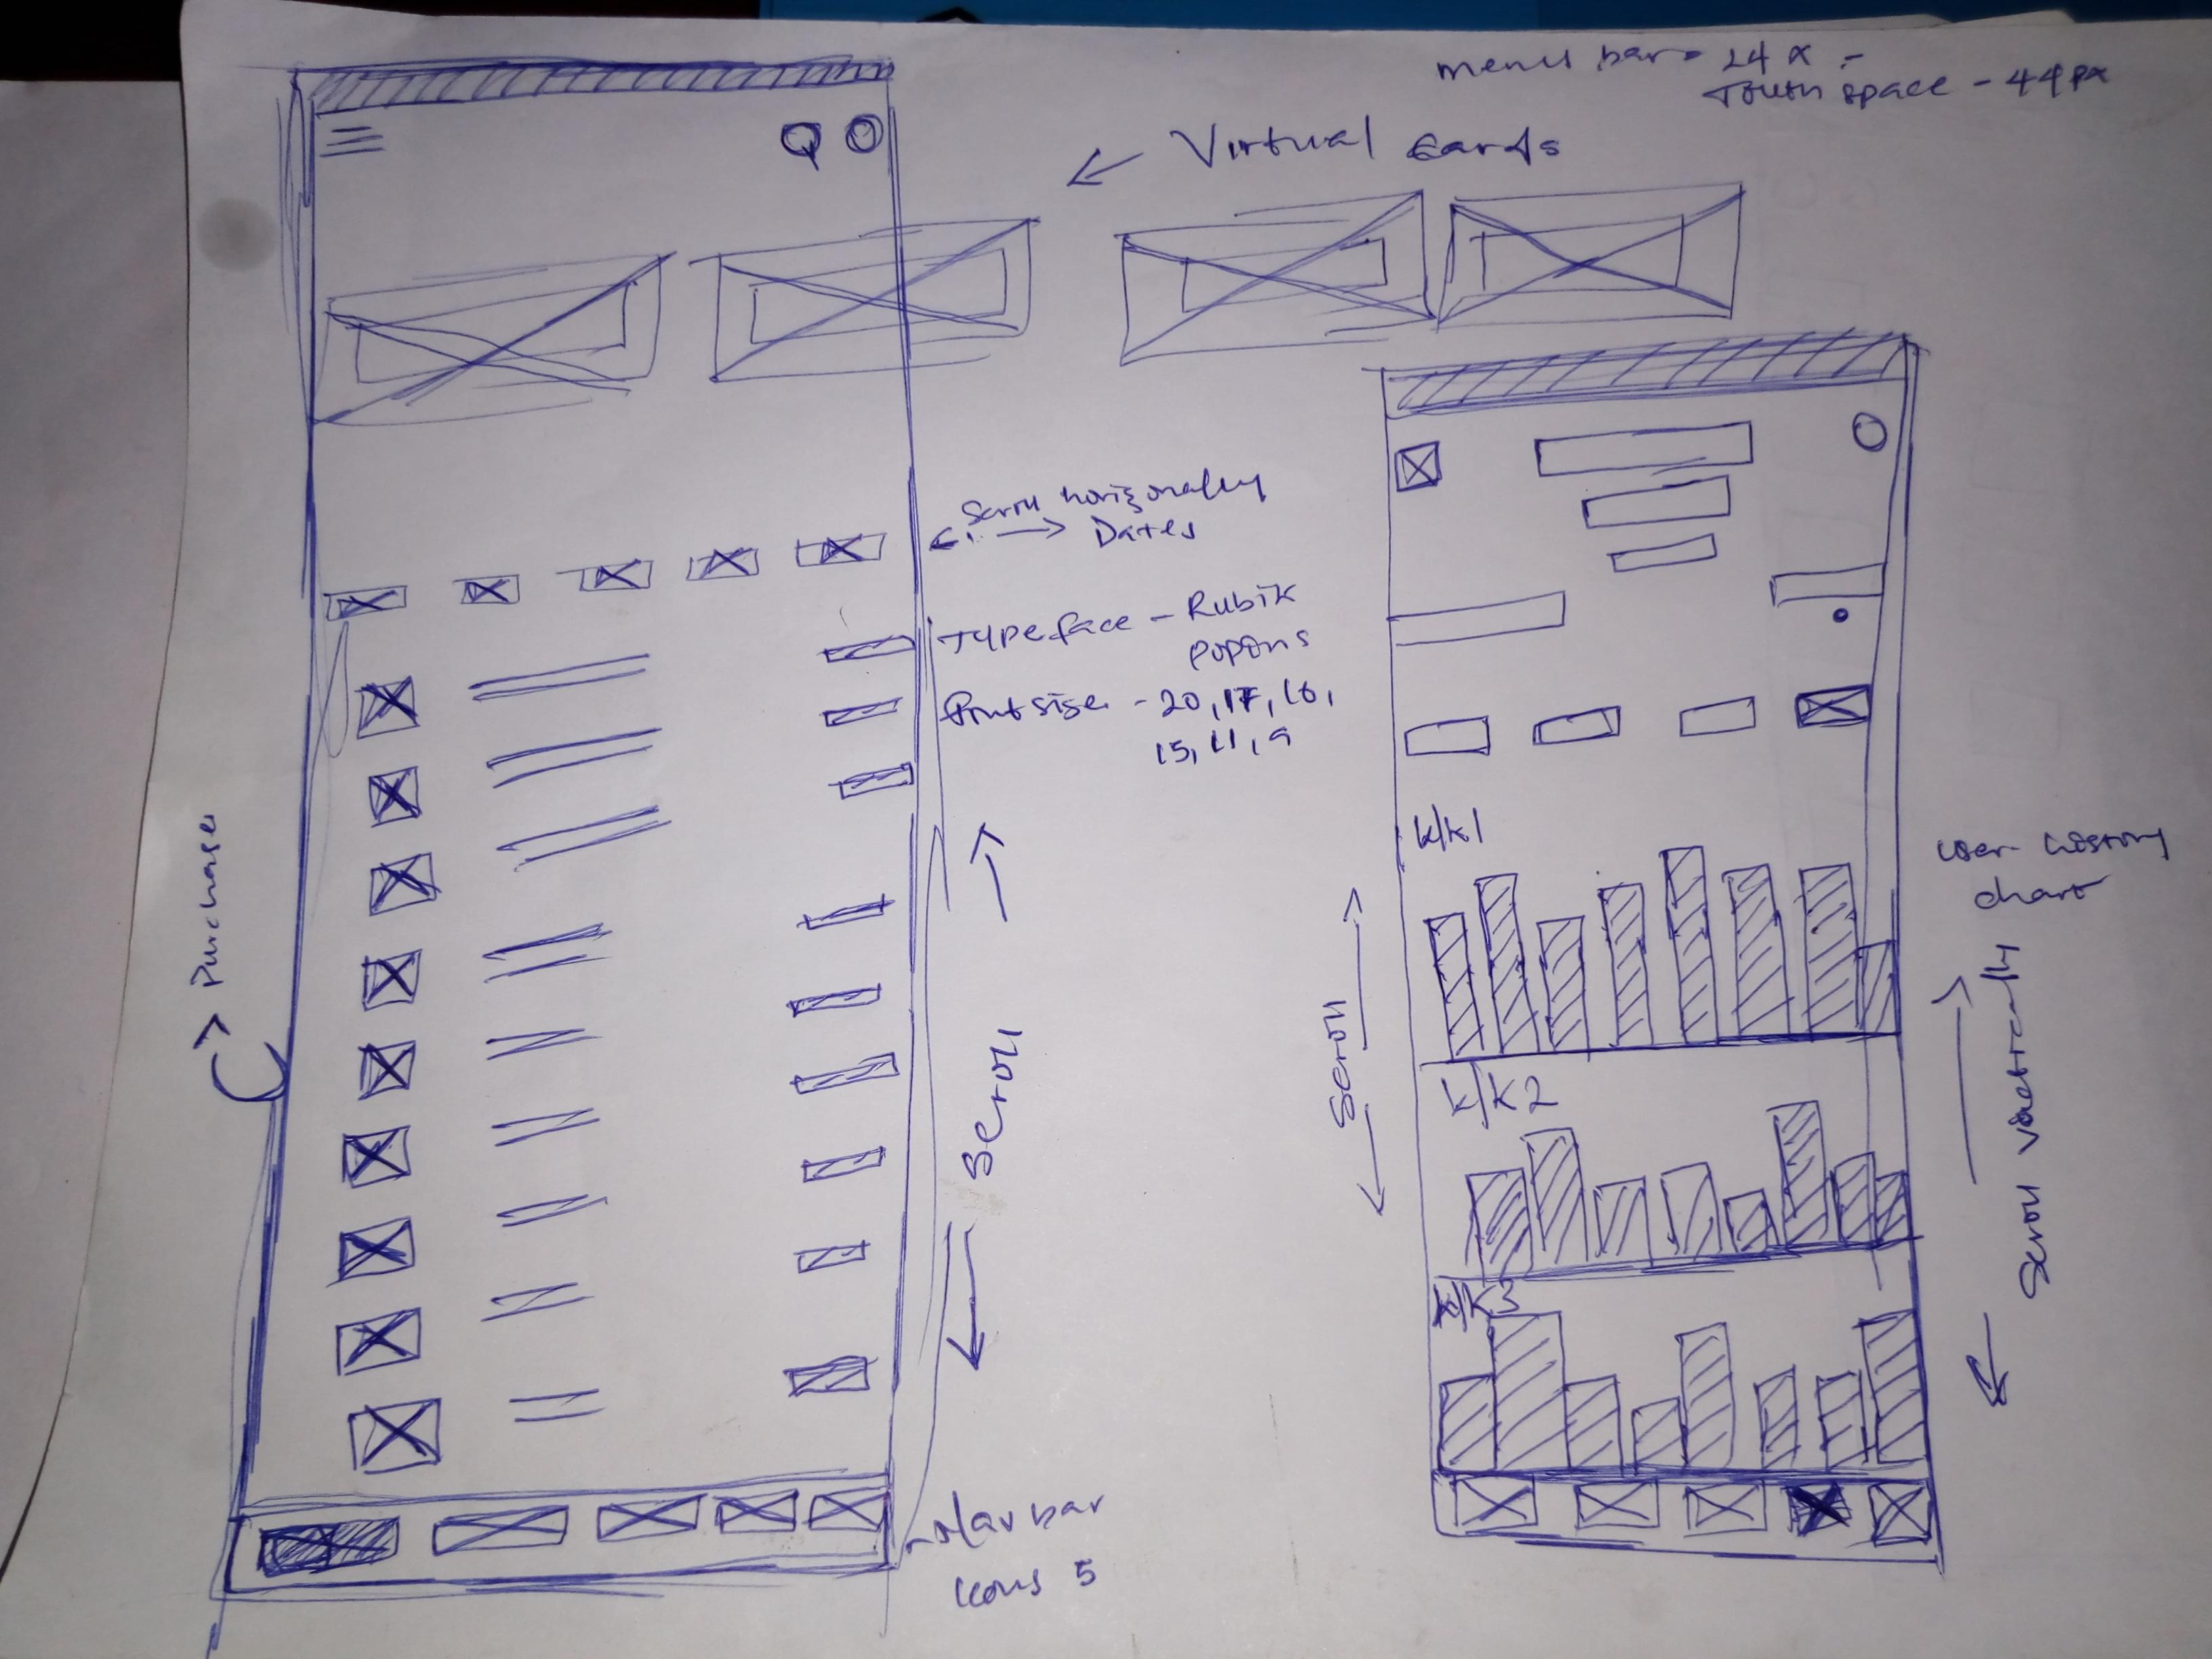 menu bar = 24 x -
Touth space - 44px
Virtual Cards
Scroll horizonally
Dates
Typeface - Rubik
popons
Font size - 20, 17, 16,
15, 11, 9
Purchase
Scroll
Nav bar
Icons 5
K/K1
K/K2
K/K3
Scroll
User history
chart
Scroll